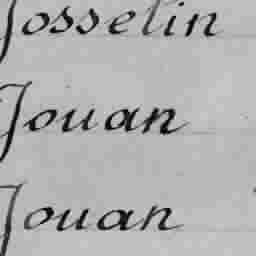 Josselin
Jouan
Jouan